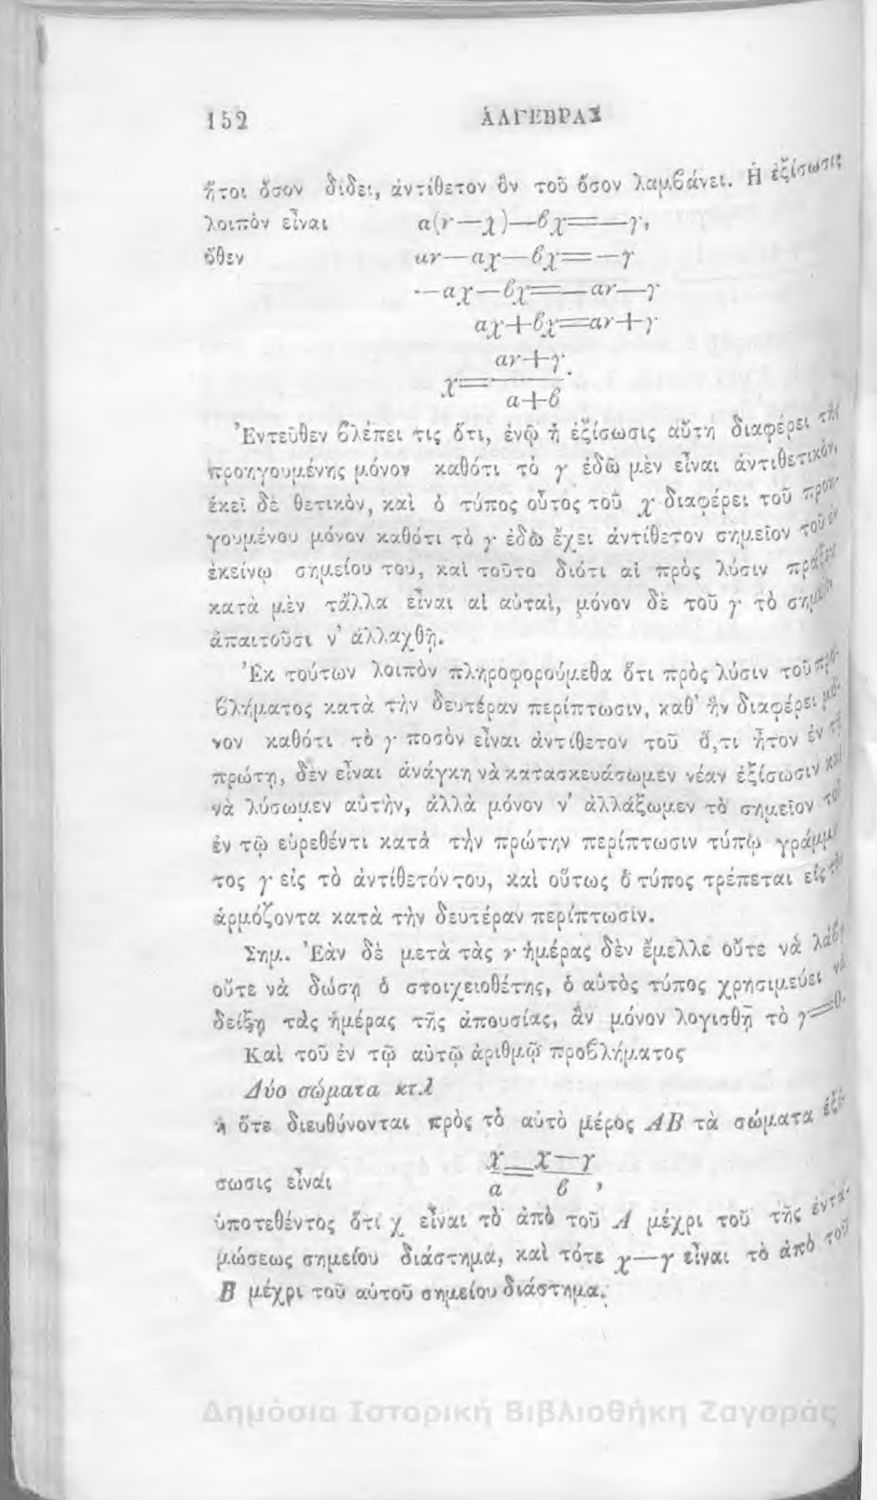 152 ἈΛΓΕΒΡΑΣ
ἤτοι ὅσον δίδει, ἀντίθετον ὂν τοῦ ὅσον λαμβάνει. Ἡ ἐξίσωσις
λοιπὸν εἶναι α(ν—χ)—βχ=—γ,
ὅθεν αν—αχ—βχ=—γ
—αχ—βχ=—αν—γ
αχ+βχ=αν+γ
αν+γ
χ=———.
α+β
Ἐντεῦθεν βλέπει τις ὅτι, ἐνῷ ἡ ἐξίσωσις αὕτη διαφέρει τῆς
προηγουμένης μόνον καθότι τὸ γ ἐδῶ μὲν εἶναι ἀντιθετικὸν,
ἐκεῖ δὲ θετικὸν, καὶ ὁ τύπος οὗτος τοῦ χ διαφέρει τοῦ προη-
γουμένου μόνον καθότι τὸ γ ἐδῶ ἔχει ἀντίθετον σημεῖον τοῦ ἐν
ἐκείνῳ σημείου του, καὶ τοῦτο διότι αἱ πρὸς λύσιν πράξεις
κατὰ μὲν τἄλλα εἶναι αἱ αὐταὶ, μόνον δὲ τοῦ γ τὸ σημεῖον
ἀπαιτοῦσι ν' ἀλλαχθῇ.
Ἐκ τούτων λοιπὸν πληροφορούμεθα ὅτι πρὸς λύσιν τοῦ προ-
βλήματος κατὰ τὴν δευτέραν περίπτωσιν, καθ' ἣν διαφέρει μό-
νον καθότι τὸ γ ποσὸν εἶναι ἀντίθετον τοῦ ὅ,τι ἦτον ἐν τῇ
πρώτῃ, δὲν εἶναι ἀνάγκη νὰ κατασκευάσωμεν νέαν ἐξίσωσιν καὶ
νὰ λύσωμεν αὐτὴν, ἀλλὰ μόνον ν' ἀλλάξωμεν τὸ σημεῖον τοῦ
ἐν τῷ εὑρεθέντι κατὰ τὴν πρώτην περίπτωσιν τύπῳ γράμμα-
τος γ εἰς τὸ ἀντίθετόν του, καὶ οὕτως ὁ τύπος τρέπεται εἰς τὸν
ἁρμόζοντα κατὰ τὴν δευτέραν περίπτωσιν.
Σημ. Ἐὰν δὲ μετὰ τὰς ν ἡμέρας δὲν ἔμελλε οὔτε νὰ λάβῃ
οὔτε νὰ δώσῃ ὁ στοιχειοθέτης, ὁ αὐτὸς τύπος χρησιμεύει νὰ
δείξῃ τὰς ἡμέρας τῆς ἀπουσίας, ἂν μόνον λογισθῇ τὸ γ=0.
Καὶ τοῦ ἐν τῷ αὐτῷ ἀριθμῷ προβλήματος
Δύο σώματα κτλ
ἡ ὅτε διευθύνονται πρὸς τὸ αὐτὸ μέρος ΑΒ τὰ σώματα ἐξί-
σωσις εἶναι χ/α = χ—γ/β ,
ὑποτεθέντος ὅτι χ εἶναι τὸ ἀπὸ τοῦ Α μέχρι τοῦ τῆς ἐντα-
μώσεως σημείου διάστημα, καὶ τότε χ—γ εἶναι τὸ ἀπὸ τοῦ
Β μέχρι τοῦ αὐτοῦ σημείου διάστημα.
Δημόσια Ιστορική Βιβλιοθήκη Ζαγοράς